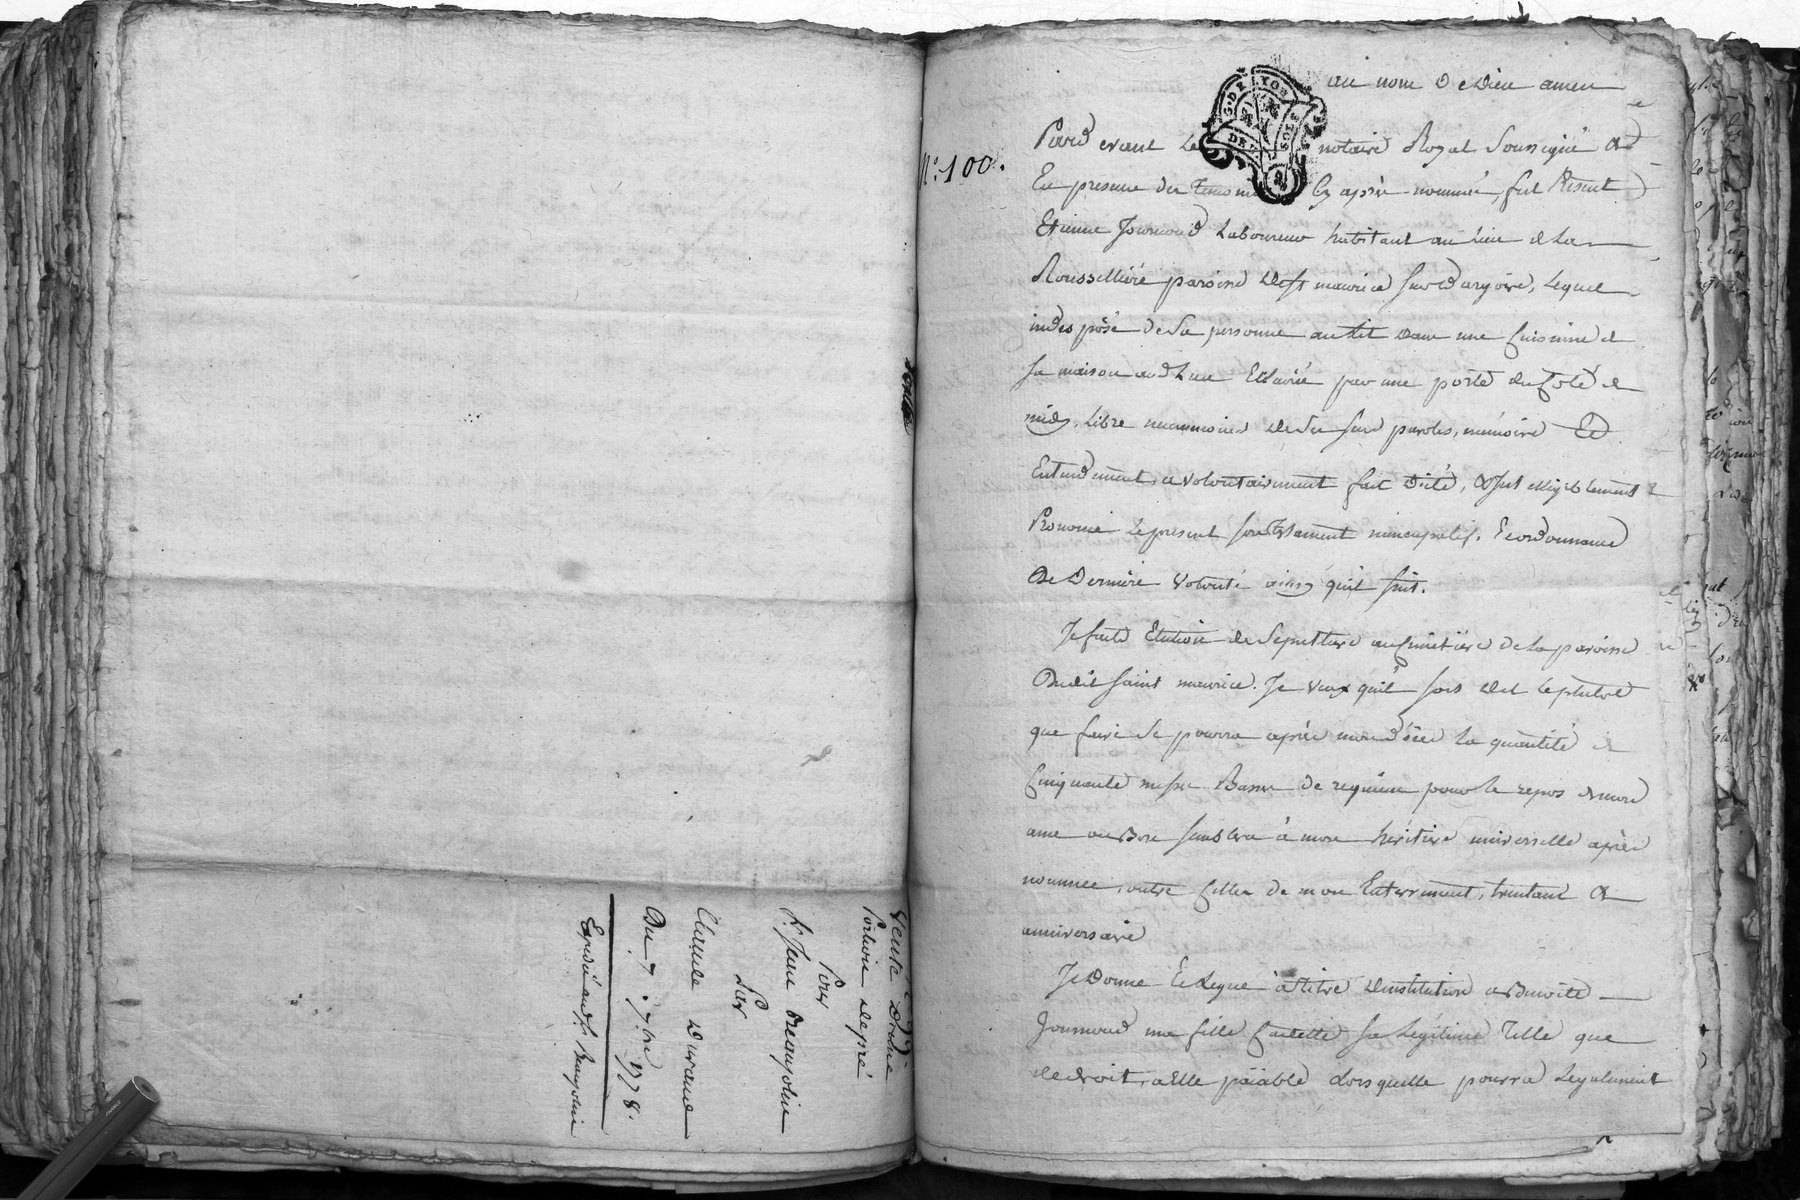 Vente D'une
Portion de pré
Pour
Sr. Jean Beaujolin
Par
Claude Durand
Du 7. 7bre 1778.
Expédié audt. Sr. Beaujolin
N°. 100.
G. DE LYON
DEUX SOLS
au nom De Dieu amen
Pard evant Le notaire Royal Soussigné &
En presence des temoins Cy après nommés, fut Present
Etienne Journoud Laboureur habitant au Lieu de La
Roussilliere paroisse de St maurice sur d'argoire, Lequel
indisposé de Sa personne au lit dans une Cuisine de
sa maison aud Lieu Eclairée par une porte du Coté de
midy, Libre neanmoins de Ses sens paroles, mémoire Et
Entendement, a volontairement fait dicté, & intelligiblement
Prononcé Le present son testament nuncupatif, Et ordonnance
De Derniere Volonté ainsy qu'il suit.
Je faits Election de Sepulture au Cimetiere de La paroisse
Dudit Saint maurice. Je veux qu'il soit dit Le plutot
que faire Se pourra après mon décès La quantité de
Cinquante messes Basses de requiem pour le repos de mon
ame ou Bon semblera à mon héritiere universelle après
nommée, outre Celles de mon Enterrement, trentain &
anniversaire
Je Donne Et Legue à titre d'institution a Benoite
Journoud ma fille Cadette Sa Légitime Telle que
de droit, a Elle païable Lorsquelle pourra Legalement